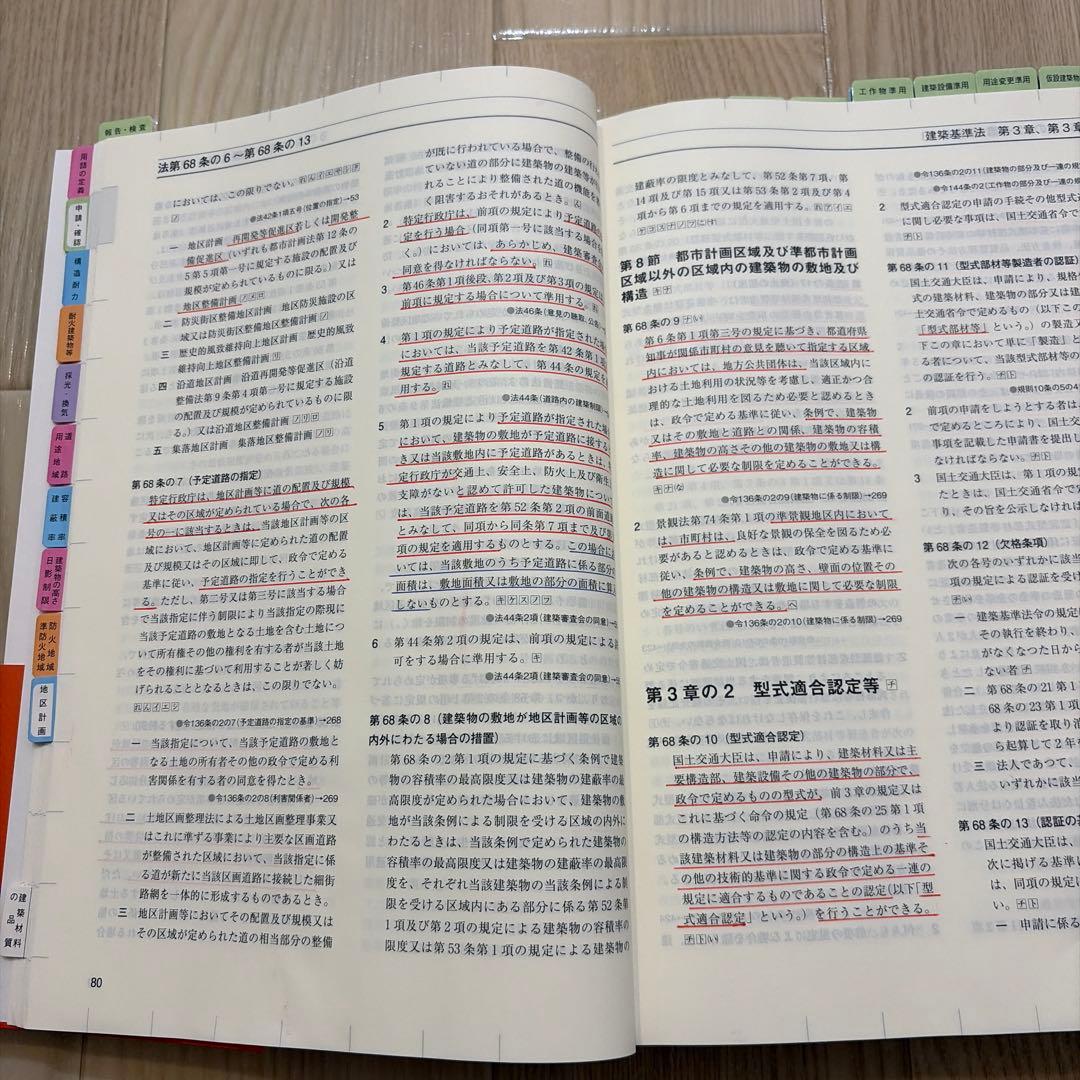 報告・検査
用語の定義
申請・確認
構造耐力
耐火建築物等
採光・換気
道路
用途地域
容積率
建蔽率
建築物の高さ
日影制限
防火地域
準防火地域
地区計画
建築材料の品質
工作物準用
建築設備準用
用途変更準用
仮設建築物
法第68条の6～第68条の13
においては、この限りでない。
●法42条1項五号(位置の指定)→53
一 地区計画 再開発等促進区若しくは開発整
備促進区(いずれも都市計画法第12条の
5第5項第一号に規定する施設の配置及び
規模が定められているものに限る。)又は
地区整備計画
二 防災街区整備地区計画 地区防災施設の区
域又は防災街区整備地区整備計画
三 歴史的風致維持向上地区計画 歴史的風致
維持向上地区整備計画
四 沿道地区計画 沿道再開発等促進区(沿道
整備法第9条第4項第一号に規定する施設
の配置及び規模が定められているものに限
る。)又は沿道地区整備計画
五 集落地区計画 集落地区整備計画
第68条の7(予定道路の指定)
特定行政庁は、地区計画等に道の配置及び規模
又はその区域が定められている場合で、次の各
号の一に該当するときは、当該地区計画等の区
域において、地区計画等に定められた道の配置
及び規模又はその区域に即して、政令で定める
基準に従い、予定道路の指定を行うことができ
る。ただし、第二号又は第三号に該当する場合
で当該指定に伴う制限により当該指定の際現に
当該予定道路の敷地となる土地を含む土地につ
いて所有権その他の権利を有する者が当該土地
をその権利に基づいて利用することが著しく妨
げられることとなるときは、この限りでない。
●令136条の2の7(予定道路の指定の基準)→268
一 当該指定について、当該予定道路の敷地と
なる土地の所有者その他の政令で定める利
害関係を有する者の同意を得たとき。
●令136条の2の8(利害関係者)→269
二 土地区画整理法による土地区画整理事業又
はこれに準ずる事業により主要な区画道路
が整備された区域において、当該指定に係
る道が新たに当該区画道路に接続した細街
路網を一体的に形成するものであるとき。
三 地区計画等においてその配置及び規模又は
その区域が定められた道の相当部分の整備
80
が既に行われている場合で、整備の行わ
ていない道の部分に建築物の建築等が
れることにより整備された道の機能を
く阻害するおそれがあるとき。
2 特定行政庁は、前項の規定により予定道
定を行う場合(同項第一号に該当する場合
く。)においては、あらかじめ、建築審査会
同意を得なければならない。
3 第46条第1項後段、第2項及び第3項の規定
前項に規定する場合について準用する。
●法46条(意見の聴取、公告)
4 第1項の規定により予定道路が指定された場
においては、当該予定道路を第42条第1項
規定する道路とみなして、第44条の規定を
用する。
●法44条(道路内の建築制限)
5 第1項の規定により予定道路が指定された場
において、建築物の敷地が予定道路に接する
き又は当該敷地内に予定道路があるときは、特
定行政庁が交通上、安全上、防火上及び衛生
支障がないと認めて許可した建築物につい
は、当該予定道路を第52条第2項の前面道
とみなして、同項から同条第7項まで及び第
項の規定を適用するものとする。この場合にお
いては、当該敷地のうち予定道路に係る部分の
面積は、敷地面積又は敷地の部分の面積に算
しないものとする。
●法44条2項(建築審査会の同意)
6 第44条第2項の規定は、前項の規定による許
可をする場合に準用する。
●法44条2項(建築審査会の同意)
第68条の8(建築物の敷地が地区計画等の区域の
内外にわたる場合の措置)
第68条の2第1項の規定に基づく条例で建築
物の容積率の最高限度又は建築物の建蔽率の最
高限度が定められた場合において、建築物の敷
地が当該条例による制限を受ける区域の内外に
わたるときは、当該条例で定められた建築物の
容積率の最高限度又は建築物の建蔽率の最高限
度を、それぞれ当該建築物の当該条例による制
限を受ける区域内にある部分に係る第52条第
1項及び第2項の規定による建築物の容積率の
限度又は第53条第1項の規定による建築物の
建築基準法 第3章、第3章
建蔽率の限度とみなして、第52条第7項、第
14項及び第15項又は第53条第2項及び第4
項から第6項までの規定を適用する。
第8節 都市計画区域及び準都市計画
区域以外の区域内の建築物の敷地及び
構造
第68条の9
第6条第1項第三号の規定に基づき、都道府県
知事が関係市町村の意見を聴いて指定する区域
内においては、地方公共団体は、当該区域内に
おける土地利用の状況等を考慮し、適正かつ合
理的な土地利用を図るため必要と認めるとき
は、政令で定める基準に従い、条例で、建築物
又はその敷地と道路との関係、建築物の容積
率、建築物の高さその他の建築物の敷地又は構
造に関して必要な制限を定めることができる。
●令136条の2の9(建築物に係る制限)→269
2 景観法第74条第1項の準景観地区内において
は、市町村は、良好な景観の保全を図るため必
要があると認めるときは、政令で定める基準に
従い、条例で、建築物の高さ、壁面の位置その
他の建築物の構造又は敷地に関して必要な制限
を定めることができる。
●令136条の2の10(建築物に係る制限)→269
第3章の2 型式適合認定等
第68条の10(型式適合認定)
国土交通大臣は、申請により、建築材料又は主
要構造部、建築設備その他の建築物の部分で、
政令で定めるものの型式が、前3章の規定又は
これに基づく命令の規定(第68条の25第1項
の構造方法等の認定の内容を含む。)のうち当
該建築材料又は建築物の部分の構造上の基準そ
の他の技術的基準に関する政令で定める一連の
規定に適合するものであることの認定(以下「型
式適合認定」という。)を行うことができる。
●令136条の2の11(建築物の部分及び一連の規
●令144条の2(工作物の部分及び一連の規
2 型式適合認定の申請の手続その他型式
に関し必要な事項は、国土交通省令で
第68条の11(型式部材等製造者の認証)
国土交通大臣は、申請により、規格
式の建築材料、建築物の部分又は建
土交通省令で定めるもの(以下この
「型式部材等」という。)の製造又
下この章において単に「製造」と
る者について、当該型式部材等の
の認証を行う。
●規則10条の5の4
2 前項の申請をしようとする者は、
で定めるところにより、国土交
事項を記載した申請書を提出し
なければならない。
3 国土交通大臣は、第1項の規
たときは、国土交通省令で定
り、その旨を公示しなければ
第68条の12(欠格条項)
次の各号のいずれかに該当
項の規定による認証を受け
一 建築基準法令の規定
その執行を終わり、
がなくなった日から
ない者
二 第68条の21第1
68条の23第1項
より認証を取り消
ら起算して2年を
三 法人であって、
いずれかに該当
第68条の13(認証の基
国土交通大臣は、
次に掲げる基準に
は、同項の規定に
い。
一 申請に係る